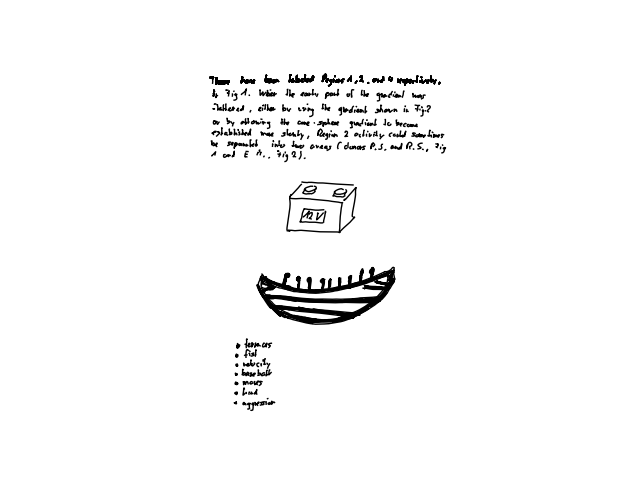 These have been labeled Regions 1, 2, and 4 respectively,
in Fig 1. When the early part of the gradient was
flattened, either by using the gradient shown in Fig 2
or by allowing the one-sphere gradient to become
established more slowly, Region 2 activity could sometimes
be separated into two areas (donors P.S. and R.S., Fig
1 and E Fig 2).
12 V
fist
velocity
baseball
moves
aggression